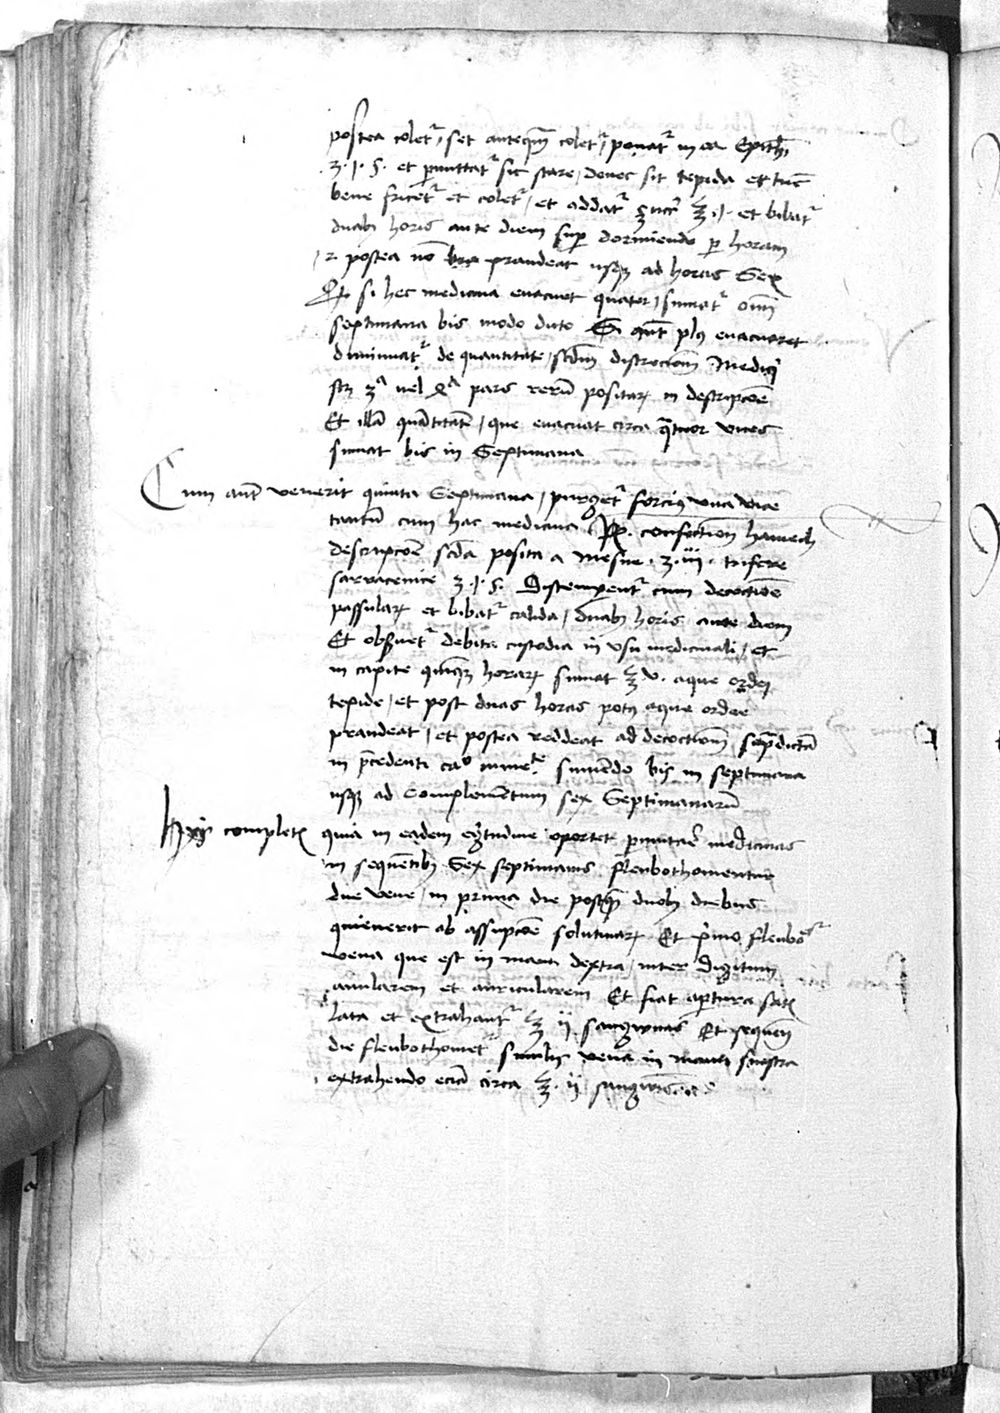 postea coletr, set anteqm coletr, ponatr in ea Epith
.ʒ.j.s. et pmittatr sic stare, donec sit tepida et tuc
bene fricetr et coletr, et addatr ℥.j. et bibatr
duab horis ante diem sup dormiendo p horam
postea no prandeat usqȝ ad horas Sex
si hec medicina evacuet quater, sumatr omi
septimana bis modo dicto Si aut plus evacuaret
diminuatr de quantitate, scdm discrecionem Medici
ʒa vel pars reru positarꝝ in descripcoe
Et illa quatitate, que evacuat circa quatuor vices
sumat bis in Septimana
Cum aut venerit quinta Septimana, purgetr forcius una vice
tantu cum hac medicina Rp. confectionis hamech
descripcoe scda posita a Mesue .ʒ.iii. trifere
sarracenice ʒ.j.s. Distemperentr cum decoctioe
passularꝝ et bibatr calida, duab horis ante diem
Et observetr debita custodia in usu medicinali, et
in capite quinqȝ horarꝝ sumat ℥.v. aque ordei
tepide, et post duas horas potus aque ordee
prandeat, et postea reddeat ad decoctionem supdicta
in precedenti cao sumendo bis in septimana
usqȝ ad complementum sex Septimanaru
Hiis completis quia in eadem egritudine oportet pmutare medicinas
in sequetib Sex septimanis fleubothomentur
due vene, in prima die postqm duob diebus
quieverit ab assupcoe solutivarꝝ Et primo fleubotr
vena que est in manu dextra, inter digitum
anularem et auricularem Et fiat apertura satis
lata et extrahantr ℥ ij sangwinis Et sequeti
die fleubothometr similis vena in manu sinistra
extrahendo ecia circa ℥. ij sangwinis